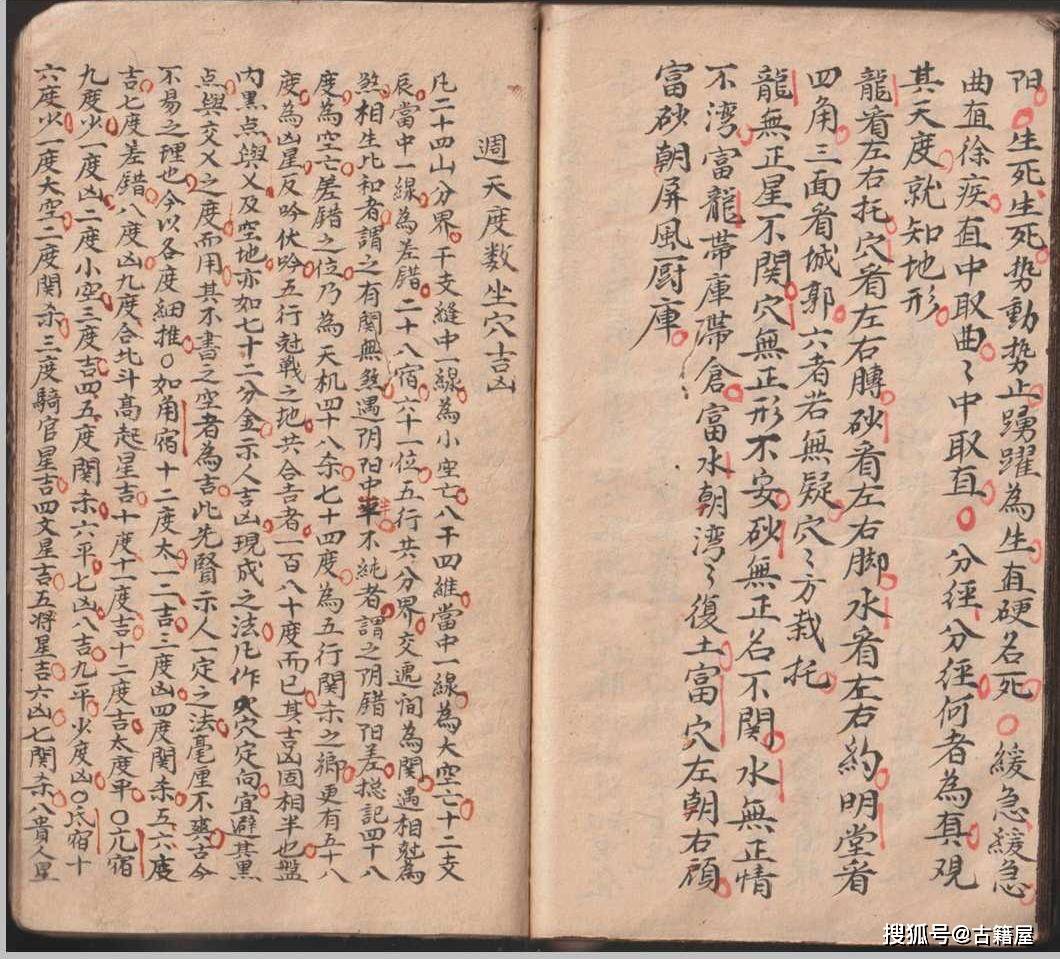 阳生死生死势動势止踴躍為生直硬名死緩急緩急
曲直徐疾直中取曲〻中取直分經分經何者為真观
其天度就知地形
龍看左右托穴看左右膊砂看左右脚水看左右約明堂看
四角三面看城郭六者若無疑穴〻方栽托
龍無正星不関穴無正形不安砂無正名不関水無正情
不湾富龍帶庫帶倉富水朝湾〻復土富穴左朝右顧
富砂朝屏風厨庫
週天度数坐穴吉凶
凡二十四山分界干支縫中一線為小空亡八干四維當中一線為大空亡十二支
辰當中一線為差錯二十八宿六十一位五行共分界交遞间為関遇相尅為
煞相生比和者謂之有関無煞遇阴阳中半不純者謂之阴錯阳差捴記四十八
度為空亡差錯之位乃為天机四十八杀七十四度為五行関杀之鄉更有五十八
度為凶星反吟伏吟五行尅戰之地共合吉者一百八十度而已其吉凶固相半也盤
内黒点與乂及空地亦如七十二分金示人吉凶現成之法凡作穴定向宜避其黒
点與交乂之度而用其不書之空者為吉此先賢示人一定之法毫厘不爽古今
不易之理也今以各度細推〇如角宿十二度太一二吉三度凶四度関杀五六度
吉七度差錯八度凶九度合北斗高起星吉十度十一度吉十二度吉太度平〇亢宿
九度少一度凶二度小空三度吉四五度関杀六平七凶八吉九平少度凶〇氐宿十
六度少一度大空二度関杀三度騎官星吉四文星吉五将星吉六凶七関杀八貴人星
搜狐号@古籍屋